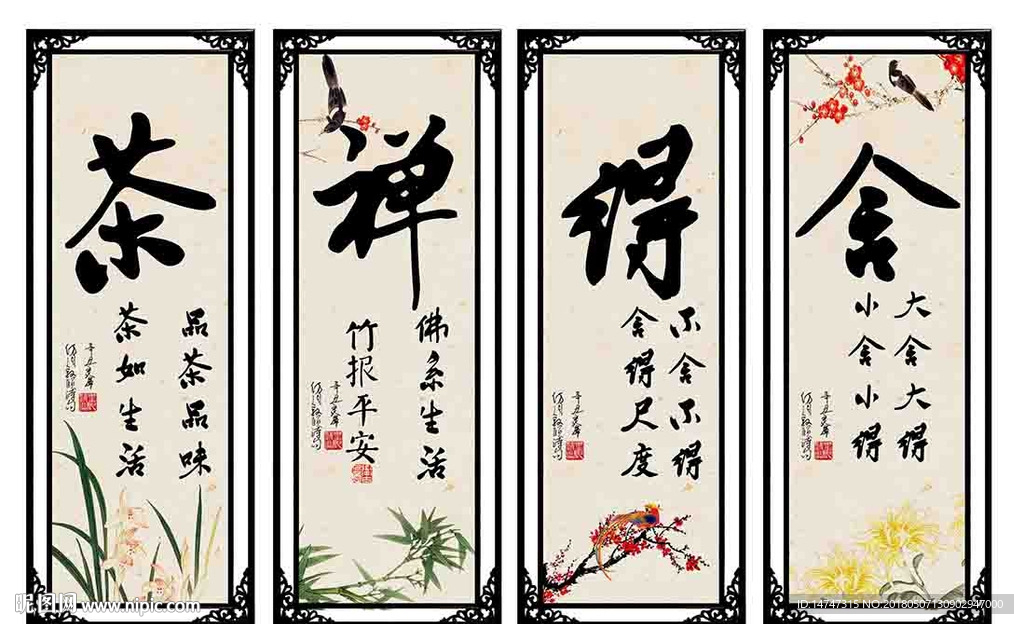 舍
大舍大得
小舍小得
得
不舍不得
舍得尺度
禅
佛系生活
竹报平安
茶
品茶品味
茶如生活
昵图网 www.nipic.com
ID:14747315 NO:20180507130902947000